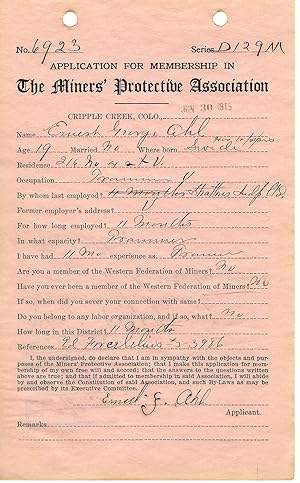 No. 6923 Series D129M
APPLICATION FOR MEMBERSHIP IN
The Miners' Protective Association
CRIPPLE CREEK, COLO., JUN 30 1915
Name Ernest George Ahl
Age 19 Married No Where born
Residence 216 No 4 st V.
Occupation Trammer
By whom last employed?
Former employer's address? V
For how long employed? 11 Months
In what capacity? Trammer
I have had 11 Mo experience as
Are you a member of the Western Federation of Miners? No
Have you ever been a member of the Western Federation of Miners? No
If so, when did you sever your connection with same?
Do you belong to any labor organization, and if so, what? No
How long in this District? 11 Months
References. Ed
I, the undersigned, do declare that I am in sympathy with the objects and purposes of the Miners' Protective Association; that I make this application for membership of my own free will and accord; that the answers to the questions written above are true; and that if admitted to membership in said Association, I will abide by and observe the Constitution of said Association, and such By-Laws as may be prescribed by its Executive Committee.
Ernest G. Ahl
Applicant.
Remarks